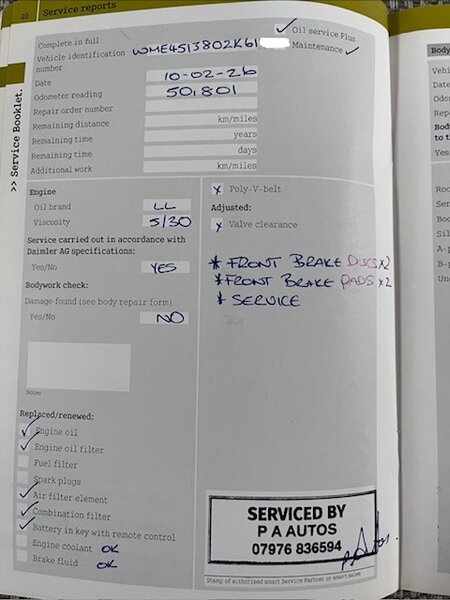 20 Service reports
Complete in full
✓ Oil service Plus
Vehicle identification number WME4513802K61
Maintenance ✓
Date 10-02-26
Odometer reading 50,801
Repair order number
Remaining distance km/miles
Remaining time years
Remaining time days
Additional work km/miles
>> Service Booklet.
Engine
Oil brand LL
Viscosity 5/30
Service carried out in accordance with
Daimler AG specifications:
Yes/No YES
Bodywork check:
Damage found (see body repair form)
Yes/No NO
Notes
Replaced/renewed:
✓ Engine oil
✓ Engine oil filter
Fuel filter
Spark plugs
✓ Air filter element
✓ Combination filter
✓ Battery in key with remote control
Engine coolant OK
Brake fluid OK
x Poly-V-belt
Adjusted:
x Valve clearance
* FRONT BRAKE DISCS x2
* FRONT BRAKE PADS x2
* SERVICE
SERVICED BY
P A AUTOS
07976 836594
P A Autos.
Stamp of authorised smart Service Partner or smart sales
Body
Vehi
Date
Odo
Repa
Body
to t
Yes
Roo
Ser
Boo
Sil
A-p
B-p
Und